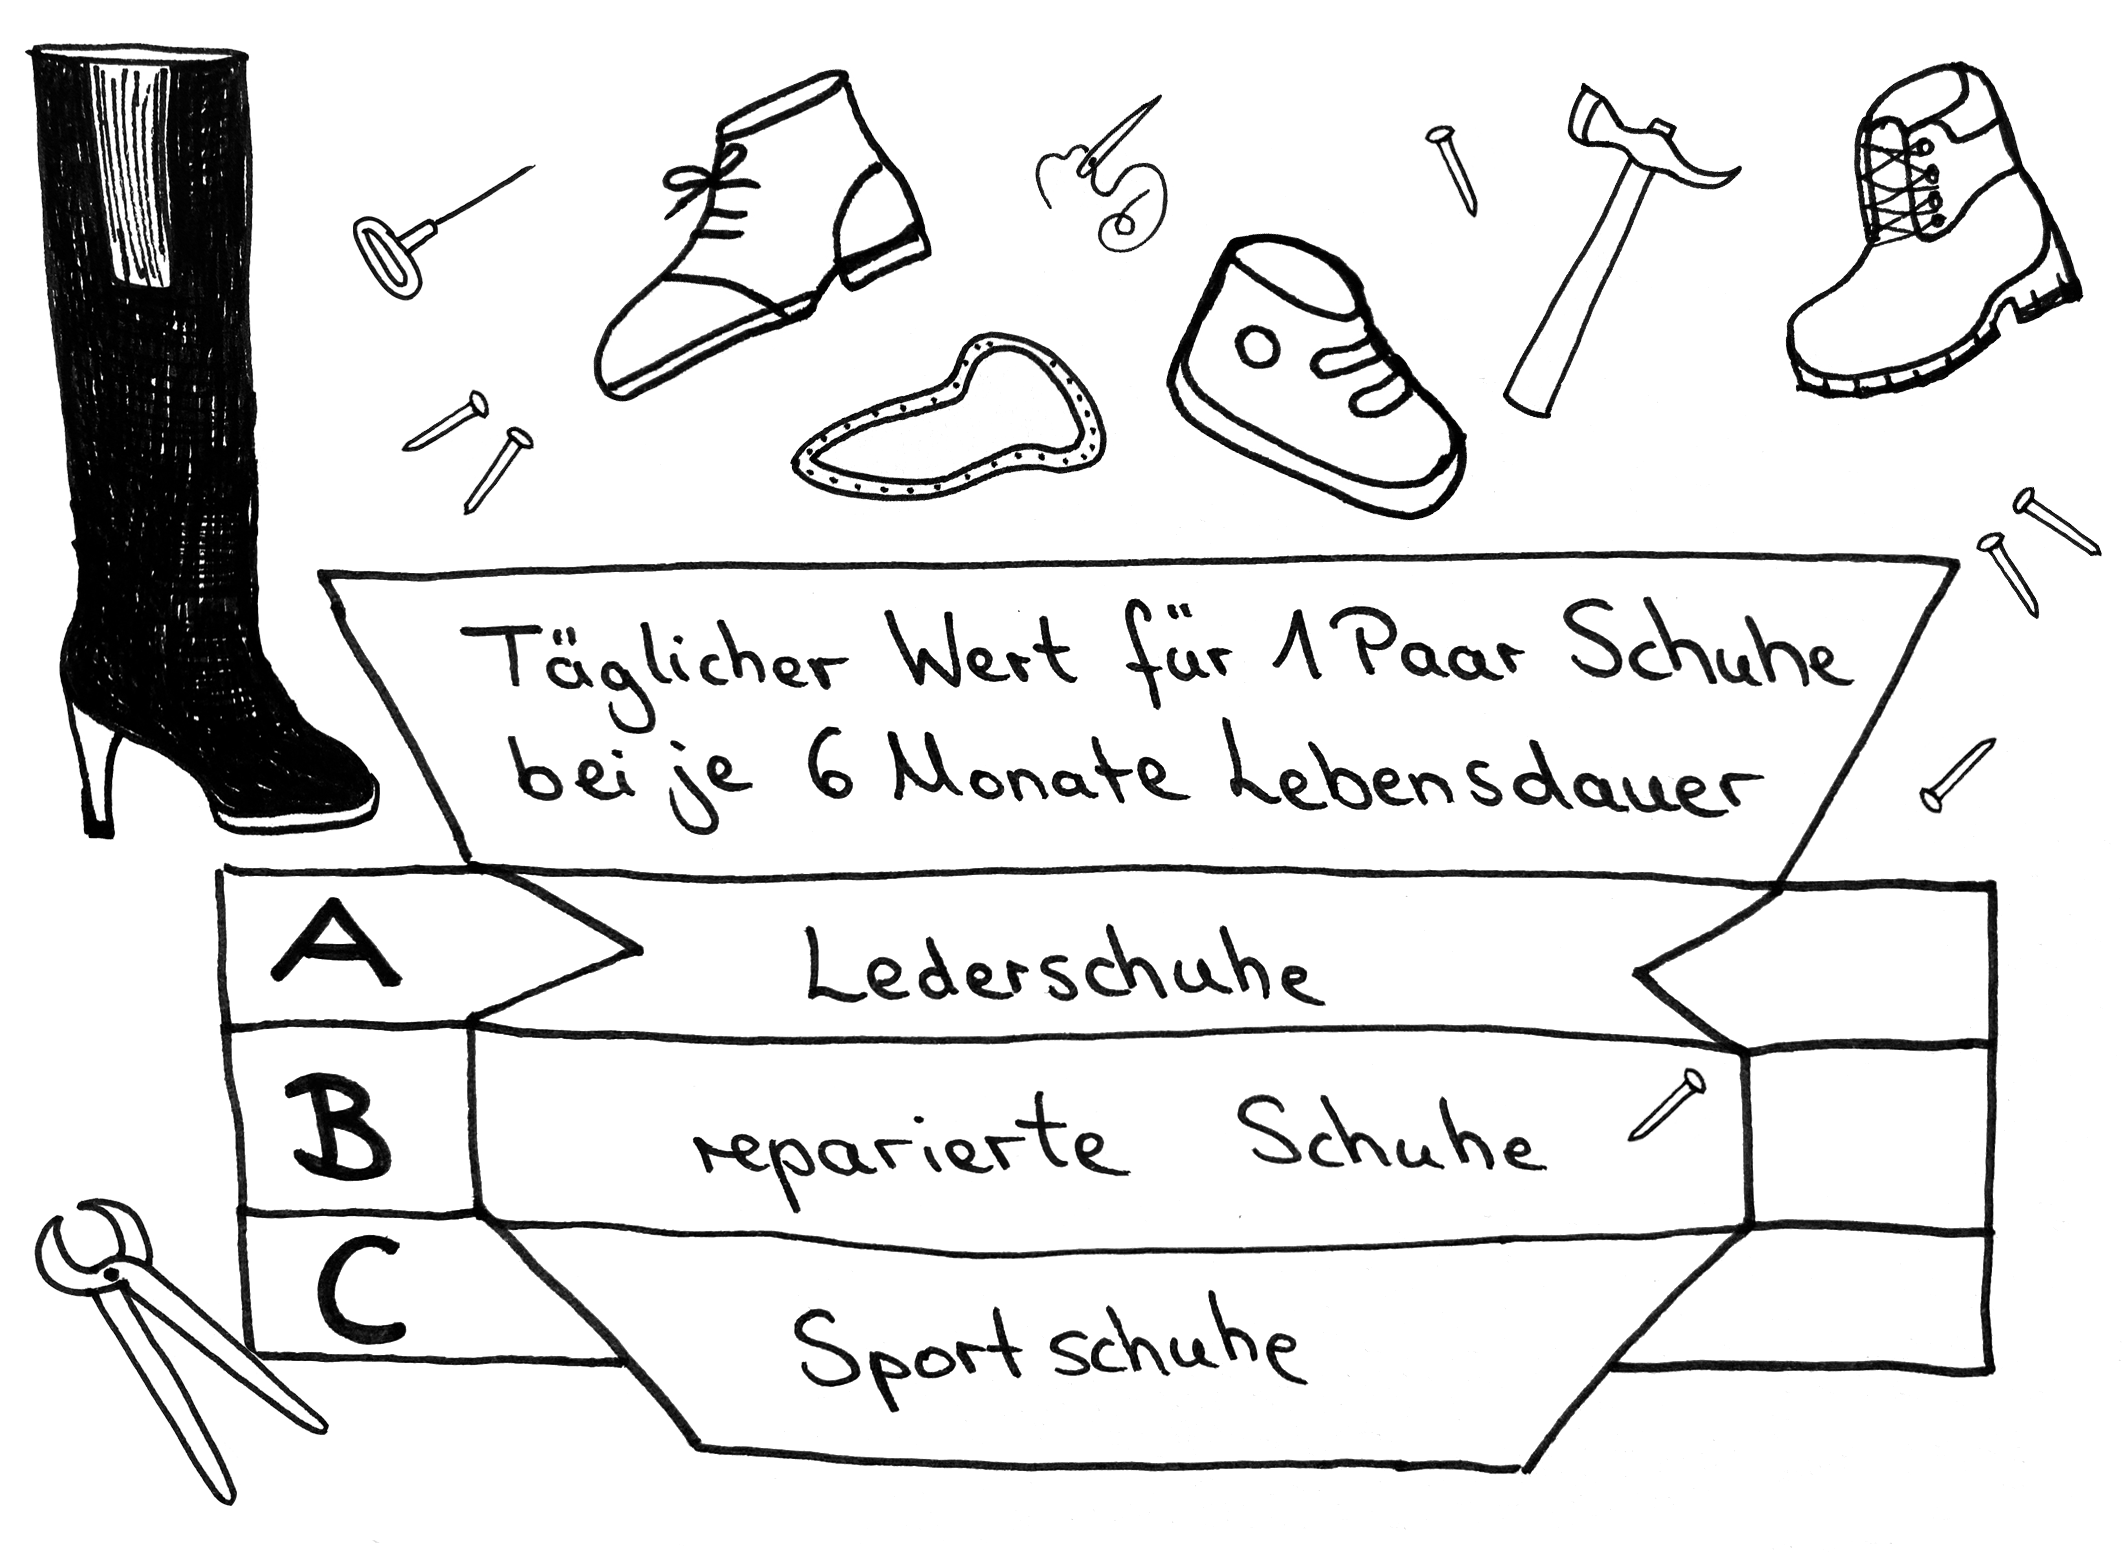 Täglicher Wert für 1 Paar Schuhe
bei je 6 Monate Lebensdauer
A Lederschuhe
B reparierte Schuhe
C Sportschuhe